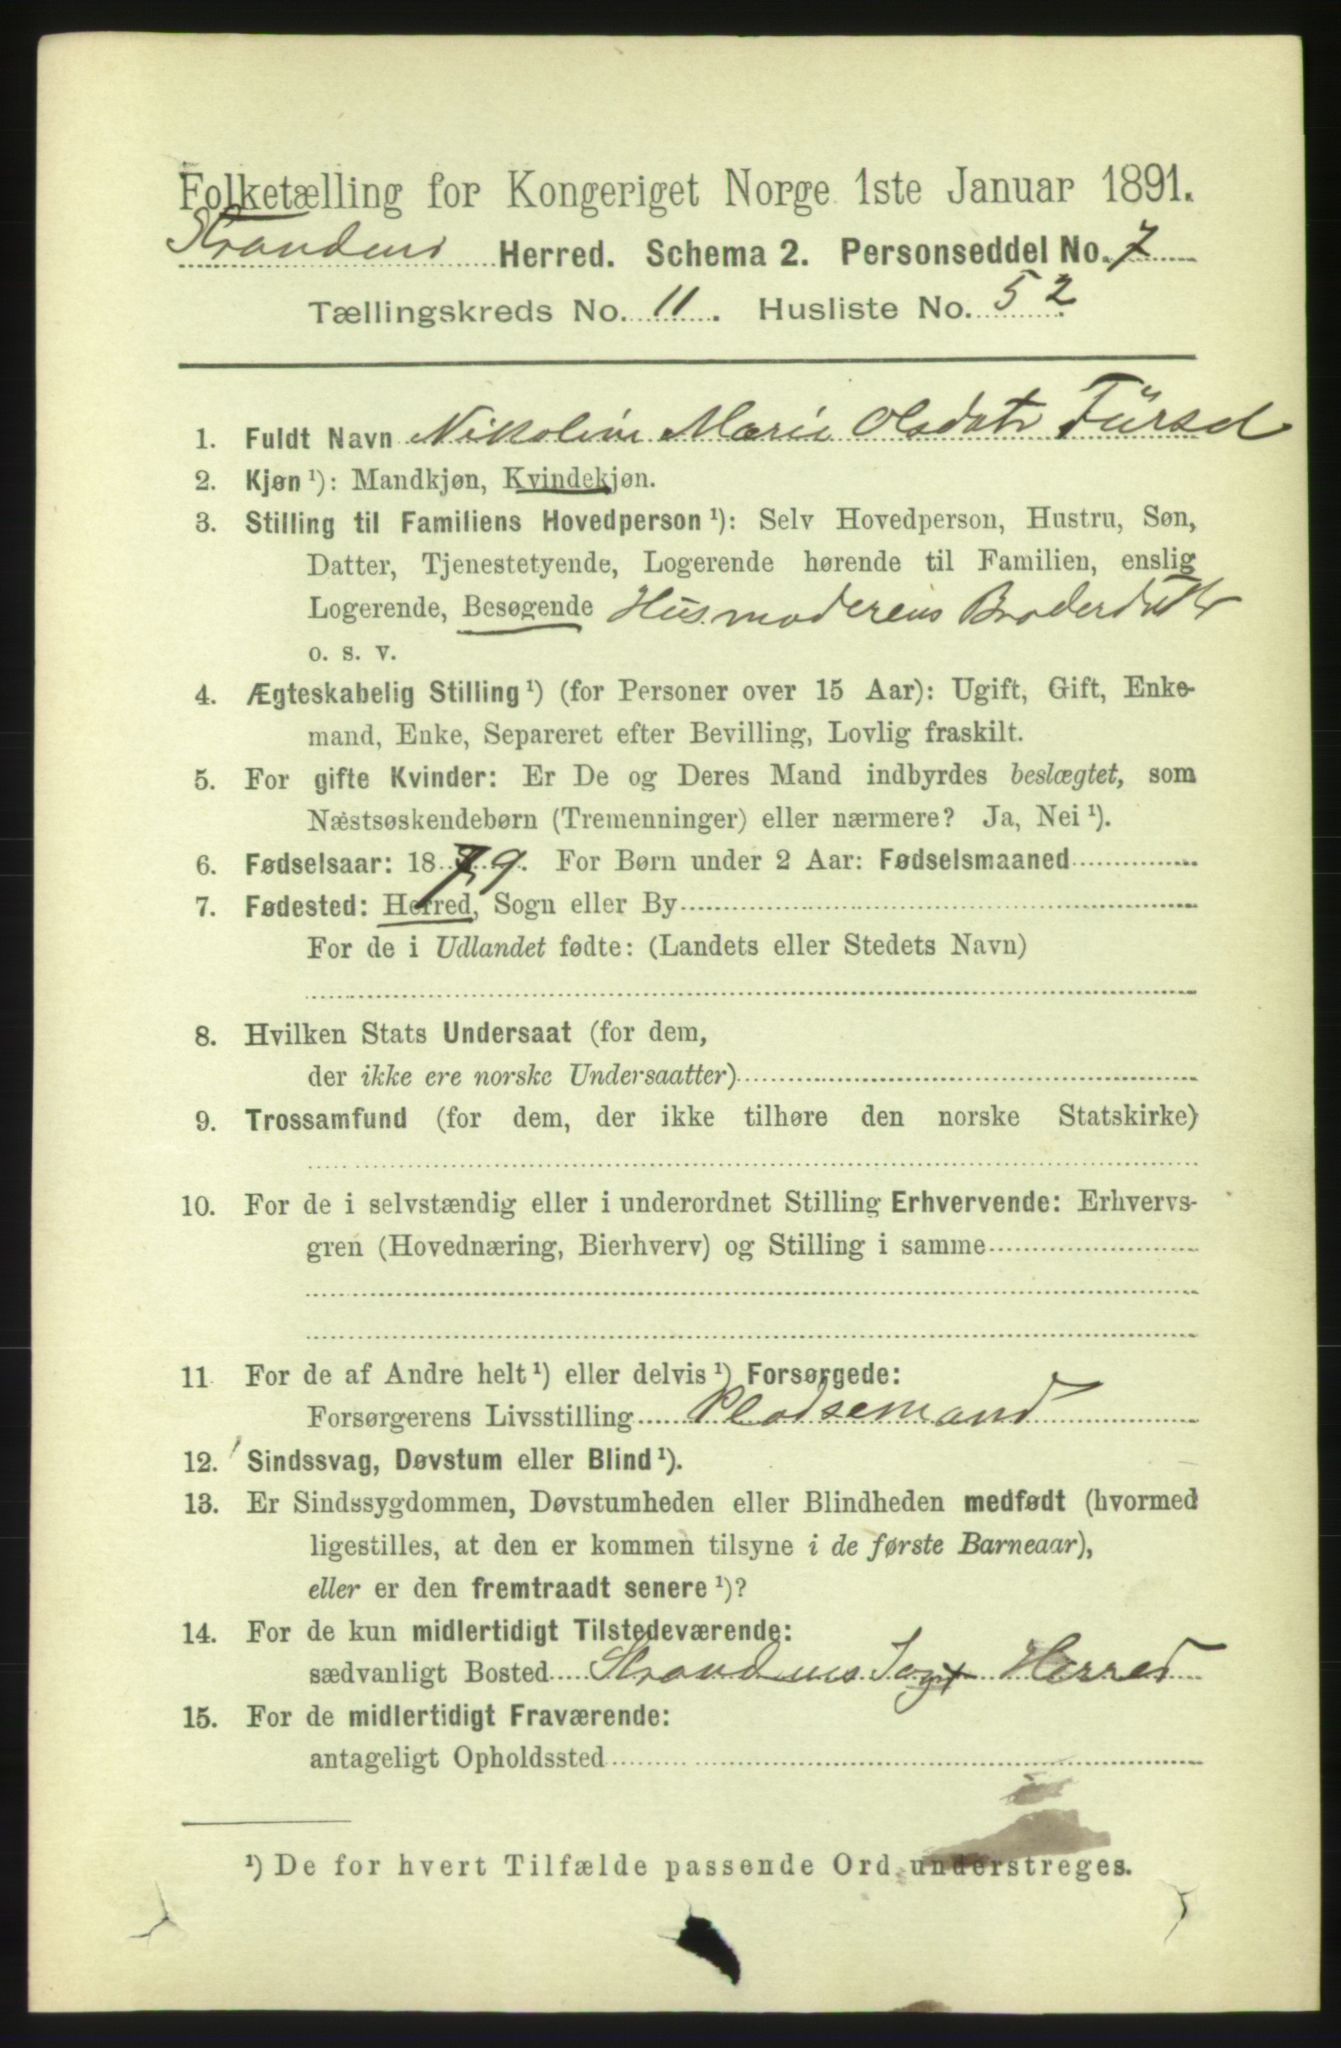 Folketælling for Kongeriget Norge 1ste Januar 1891.
Strandens Herred. Schema 2. Personseddel No. 7
Tællingskreds No. 11. Husliste No. 52
1. Fuldt Navn Nikoline Marie Olsdatr Fürset
2. Kjøn ¹): Mandkjøn, Kvindekjøn.
3. Stilling til Familiens Hovedperson ¹): Selv Hovedperson, Hustru, Søn,
Datter, Tjenestetyende, Logerende hørende til Familien, enslig
Logerende, Besøgende Husmoderens Broderdatter
o. s. v.
4. Ægteskabelig Stilling ¹) (for Personer over 15 Aar): Ugift, Gift, Enke-
mand, Enke, Separeret efter Bevilling, Lovlig fraskilt.
5. For gifte Kvinder: Er De og Deres Mand indbyrdes beslægtet, som
Næstsøskendebørn (Tremenninger) eller nærmere? Ja, Nei ¹).
6. Fødselsaar: 1879. For Børn under 2 Aar: Fødselsmaaned
7. Fødested: Herred, Sogn eller By
For de i Udlandet fødte: (Landets eller Stedets Navn)
8. Hvilken Stats Undersaat (for dem,
der ikke ere norske Undersaatter)
9. Trossamfund (for dem, der ikke tilhøre den norske Statskirke)
10. For de i selvstændig eller i underordnet Stilling Erhvervende: Erhvervs-
gren (Hovednæring, Bierhverv) og Stilling i samme
11 For de af Andre helt ¹) eller delvis ¹) Forsørgede:
Forsørgerens Livsstilling Pladsemand
12. Sindssvag, Døvstum eller Blind ¹).
13. Er Sindssygdommen, Døvstumheden eller Blindheden medfødt (hvormed
ligestilles, at den er kommen tilsyne i de første Barneaar),
eller er den fremtraadt senere ¹)?
14. For de kun midlertidigt Tilstedeværende:
sædvanligt Bosted Strandens Herred
15. For de midlertidigt Fraværende:
antageligt Opholdssted
¹) De for hvert Tilfælde passende Ord understreges.